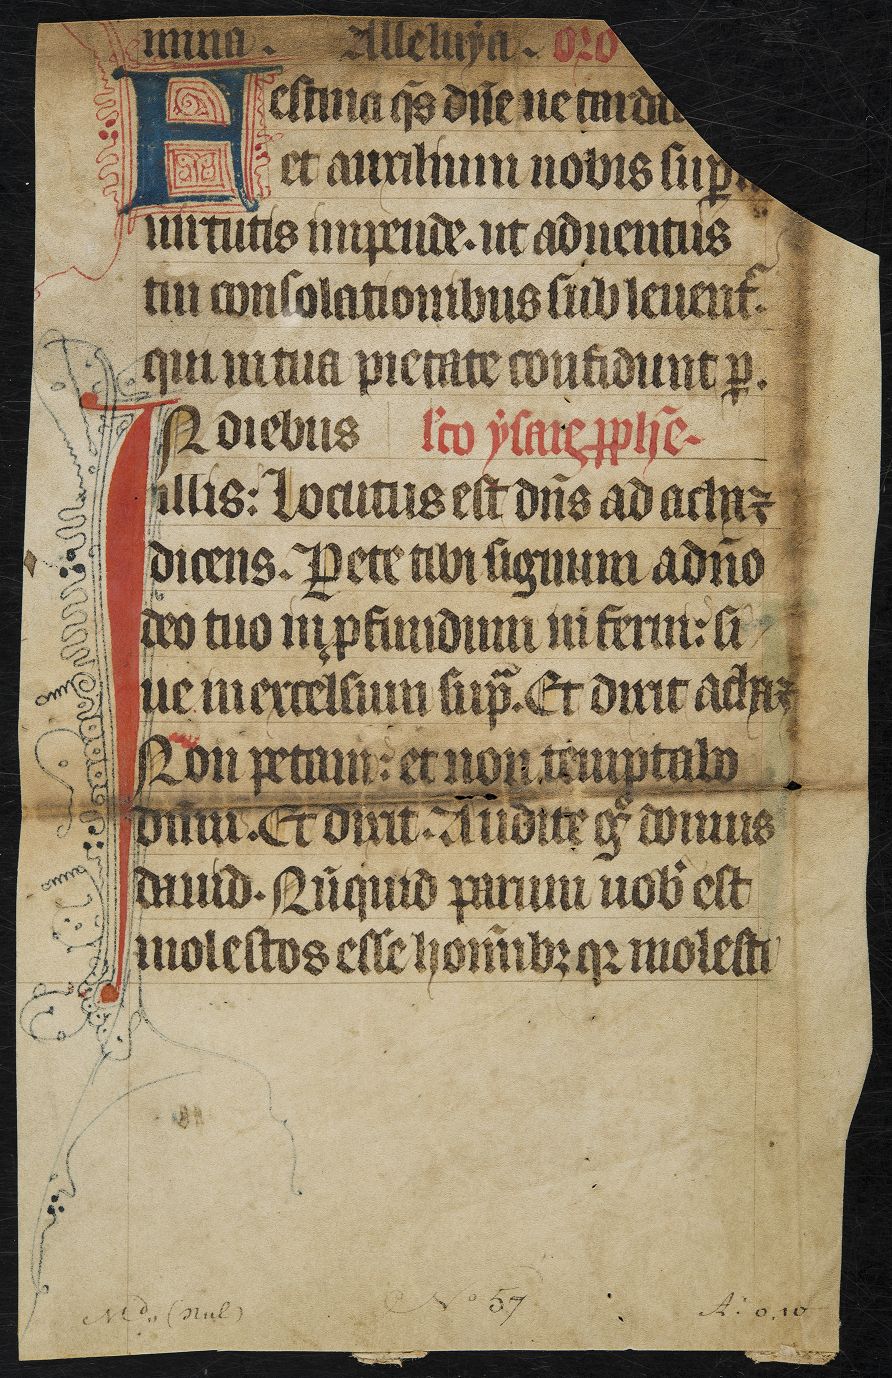 mina. Alleluya. oro
Hestina q̄s dn̄e ne tarda
et auxilium nobis sup̄n
uirtutis impende. ut aduentus
tui consolationibus subleuent᷑.
qui in tua pietate confidunt p̱.
IN diebus lc̄o ysaie pph̄e.
illis: Locutus est dn̄s ad achaz
dicens. Pete tibi signum a dn̄o
deo tuo in p̱fundum inferni: si
ue in excelsum sup̄. Et dixit achaz
Non petam: et non temptabo
dn̄m. Et dixit. Audite g̊ domus
dauid. Nūquid parum uob̄ est
molestos esse homīibꝫ qꝛ molesti
Md. (Nul) No 57 A: 0.10